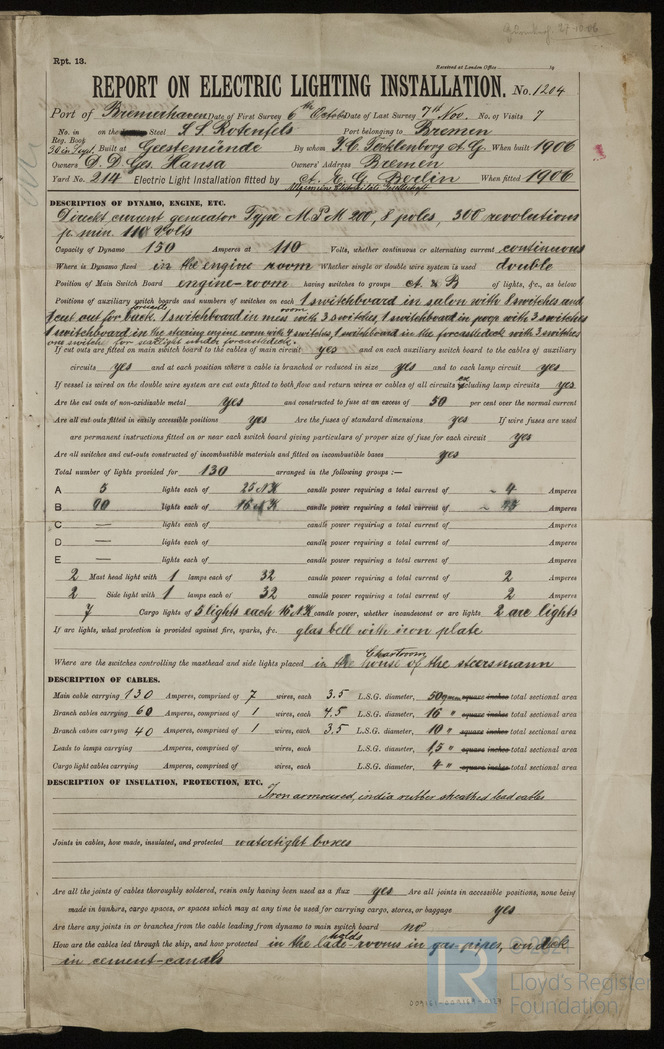 27.10.06
Rpt. 13.
Received at London Office 19
REPORT ON ELECTRIC LIGHTING INSTALLATION. No. 1204
Port of Bremerhaven Date of First Survey 6th Octob Date of Last Survey 7th Nov. No. of Visits 7
No. in Reg. Book on the Steel S.S. Rotenfels Port belonging to Bremen
Built at Geestemünde By whom J. C. Tecklenborg A. G. When built 1906
Owners D. D. Ges. Hansa Owners' Address Bremen
Yard No. 214 Electric Light Installation fitted by A. E. G. Berlin When fitted 1906
Allgemeine Elektricitäts Gesellschaft
DESCRIPTION OF DYNAMO, ENGINE, ETC.
Direckt current generator Type M.P.M 200, 8 poles, 300 revolutions
p. min. 110 Volts
Capacity of Dynamo 150 Amperes at 110 Volts, whether continuous or alternating current continuous
Where is Dynamo fixed in the engine room Whether single or double wire system is used double
Position of Main Switch Board engine-room having switches to groups A & B of lights, &c., as below
Positions of auxiliary switch boards and numbers of switches on each 1 switchboard in salon with 8 switches and
1 cut out for back. 1 switchboard in mess room with 3 switches, 1 switchboard in poop with 3 switches
1 switchboard in the steering engine room with 4 switches, 1 switchboard in the forcastledeck with 3 switches
one switch for under forcastledeck.
If cut outs are fitted on main switch board to the cables of main circuit yes and on each auxiliary switch board to the cables of auxiliary
circuits yes and at each position where a cable is branched or reduced in size yes and to each lamp circuit yes
If vessel is wired on the double wire system are cut outs fitted to both flow and return wires or cables of all circuits excluding lamp circuits yes
Are the cut outs of non-oxidizable metal yes and constructed to fuse at an excess of 50 per cent over the normal current
Are all cut outs fitted in easily accessible positions yes Are the fuses of standard dimensions yes If wire fuses are used
are permanent instructions fitted on or near each switch board giving particulars of proper size of fuse for each circuit yes
Are all switches and cut-outs constructed of incombustible materials and fitted on incombustible bases yes
Total number of lights provided for 130 arranged in the following groups :—
A 5 lights each of 25 NK candle power requiring a total current of ~ 4 Amperes
B 90 lights each of 16 NK candle power requiring a total current of ~ 45 Amperes
C — lights each of candle power requiring a total current of Amperes
D — lights each of candle power requiring a total current of Amperes
E — lights each of candle power requiring a total current of Amperes
2 Mast head light with 1 lamps each of 32 candle power requiring a total current of 2 Amperes
2 Side light with 1 lamps each of 32 candle power requiring a total current of 2 Amperes
7 Cargo lights of 5 lights each 16 NK candle power, whether incandescent or arc lights 2 arc lights
If arc lights, what protection is provided against fire, sparks, &c. glas bell with iron plate
Where are the switches controlling the masthead and side lights placed in the Chartroom house of the steersmann
DESCRIPTION OF CABLES.
Main cable carrying 130 Amperes, comprised of 7 wires, each 3.5 L.S.G. diameter, 50 qmm square inches total sectional area
Branch cables carrying 60 Amperes, comprised of 1 wires, each 4.5 L.S.G. diameter, 16 " square inches total sectional area
Branch cables carrying 40 Amperes, comprised of 1 wires, each 3.5 L.S.G. diameter, 10 " square inches total sectional area
Leads to lamps carrying Amperes, comprised of wires, each L.S.G. diameter, 1,5 " square inches total sectional area
Cargo light cables carrying Amperes, comprised of wires, each L.S.G. diameter, 4 " square inches total sectional area
DESCRIPTION OF INSULATION, PROTECTION, ETC.
Iron armoured, india rubber sheathed lead cables
Joints in cables, how made, insulated, and protected watertight boxes
Are all the joints of cables thoroughly soldered, resin only having been used as a flux yes Are all joints in accessible positions, none being
made in bunkers, cargo spaces, or spaces which may at any time be used for carrying cargo, stores, or baggage yes
Are there any joints in or branches from the cable leading from dynamo to main switch board no
How are the cables led through the ship, and how protected in the holds lade-rooms in gas-pipes, on deck
in cement-canals
LR
© 2021
Lloyd's Register
Foundation